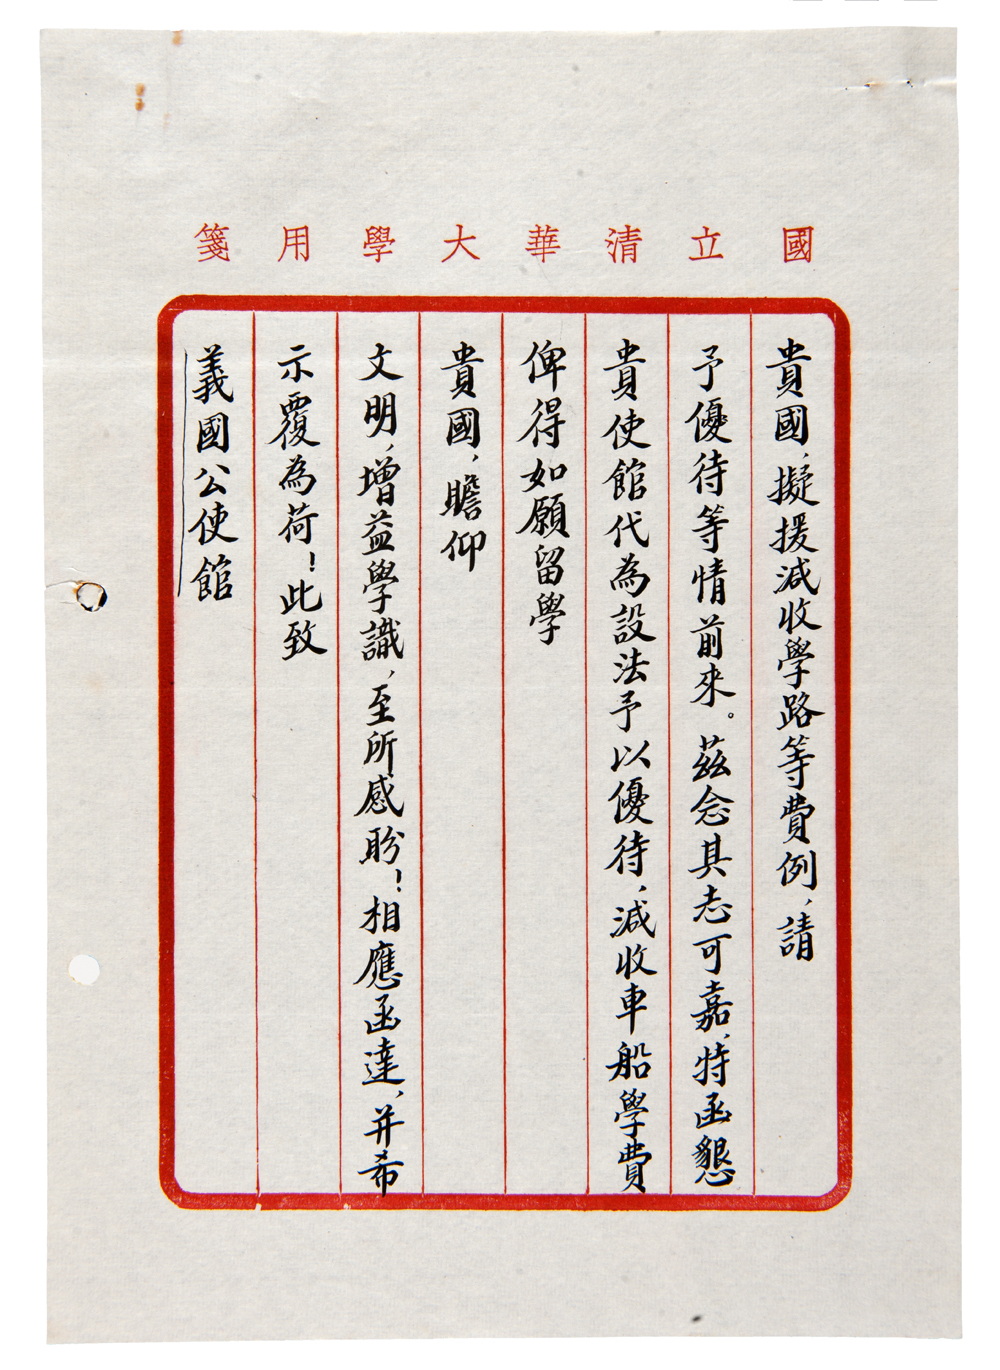 國立清華大學用箋
貴國，擬援減收學路等費例，請
予優待等情前來。茲念其志可嘉，特函懇
貴使館代為設法予以優待，減收車船學費
俾得如願留學
貴國，瞻仰
文明，增益學識，至所感盼！相應函達，并希
示覆為荷！此致
義國公使館